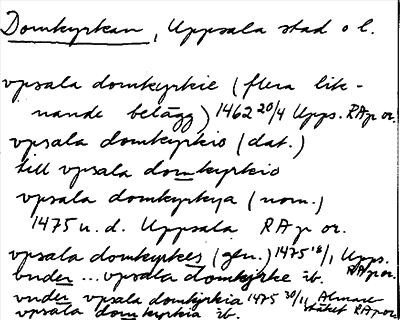 Domkyrkan, Uppsala stad o l.
vpsala domkyrkie (flera lik-
nande belägg) 1462 20/4 Upps. RAp or.
vpsala domkyrkio (dat.)
till vpsala domkyrkio
vpsala domkyrkya (nom.)
1475 u.d. Uppsala RAp or.
vpsala domkyrkes (gen.) 1475 18/1, Upps.
vnder ... vpsala domkyrke ib. RAp or.
vnder vpsala domkyrkia 1475 30/11, Almare
vpsala domkyrkia ib. stäket RAp or.